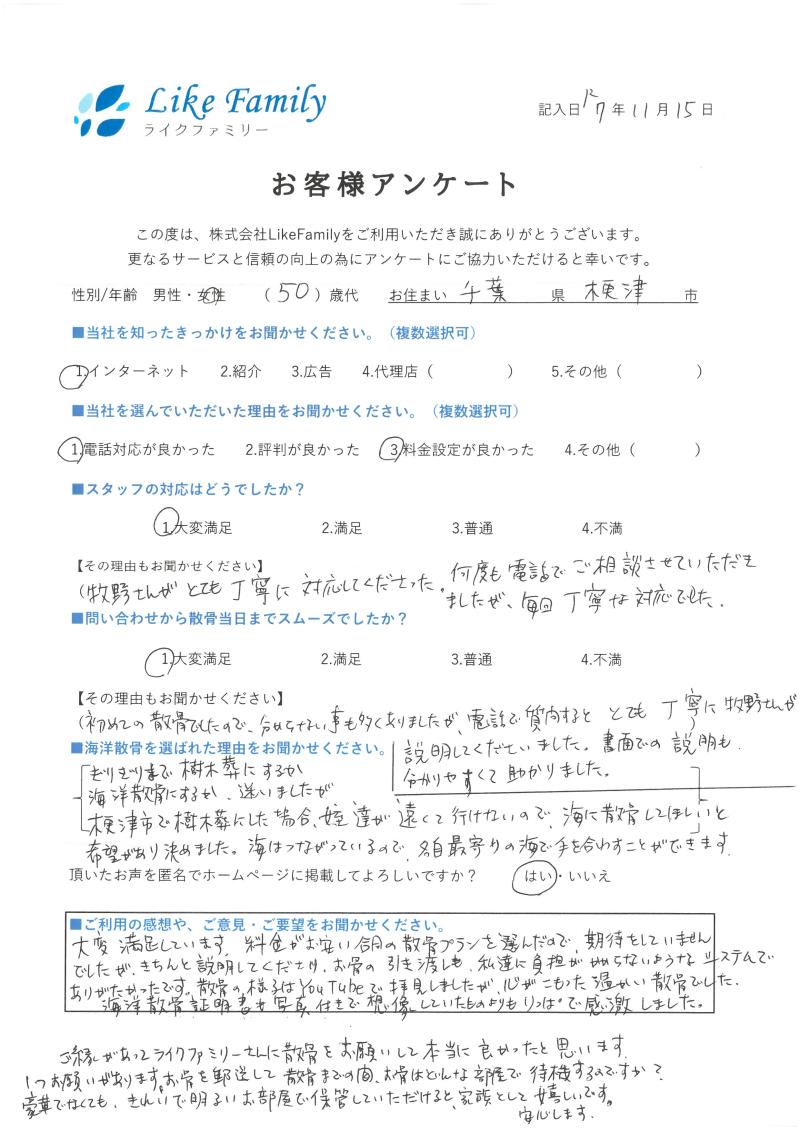 Like Family
ライクファミリー
記入日 R7年11月15日
お客様アンケート
この度は、株式会社LikeFamilyをご利用いただき誠にありがとうございます。
更なるサービスと信頼の向上の為にアンケートにご協力いただけると幸いです。
性別/年齢 男性・女性 (50)歳代 お住まい 千葉 県 木更津 市
■当社を知ったきっかけをお聞かせください。(複数選択可)
1.インターネット 2.紹介 3.広告 4.代理店( ) 5.その他( )
■当社を選んでいただいた理由をお聞かせください。(複数選択可)
1.電話対応が良かった 2.評判が良かった 3.料金設定が良かった 4.その他( )
■スタッフの対応はどうでしたか?
1.大変満足 2.満足 3.普通 4.不満
【その理由もお聞かせください】
(牧野さんがとても丁寧に対応してくださった。何度も電話でご相談させていただき
ましたが、毎回丁寧な対応でした。
■問い合わせから散骨当日までスムーズでしたか?
1.大変満足 2.満足 3.普通 4.不満
【その理由もお聞かせください】
(初めての散骨でしたので、分からない事も多くありましたが、電話で質問するととても丁寧に牧野さんが
説明してくださいました。書面での説明も
分かりやすくて助かりました。
■海洋散骨を選ばれた理由をお聞かせください。
ぎりぎりまで樹木葬にするか
海洋散骨にするか、迷いましたが
木更津市で樹木葬にした場合、姪達が遠くて行けないので、海に散骨してほしいと
希望があり決めました。海はつながっているので、各自最寄りの海で手を合わすことができます。
頂いたお声を匿名でホームページに掲載してよろしいですか? はい・いいえ
■ご利用の感想や、ご意見・ご要望をお聞かせください。
大変満足しています。料金がお安い合同の散骨プランを選んだので、期待をしていません
でしたが、きちんと説明してくださり、お骨の引き渡しも、私達に負担がかからないようなシステムで
ありがたかったです。散骨の様子はYouTubeで拝見しましたが、心がこもった温かい散骨でした。
海洋散骨証明書も写真付きで想像していたものよりもりっぱで感激しました。
ご縁があってライクファミリーさんに散骨をお願いして本当に良かったと思います。
1つお願いがあります。お骨を郵送して散骨までの間、お骨はどんな部屋で待機するのですか?
豪華でなくても、きれいで明るいお部屋で保管していただけると、家族として嬉しいです。
安心します。